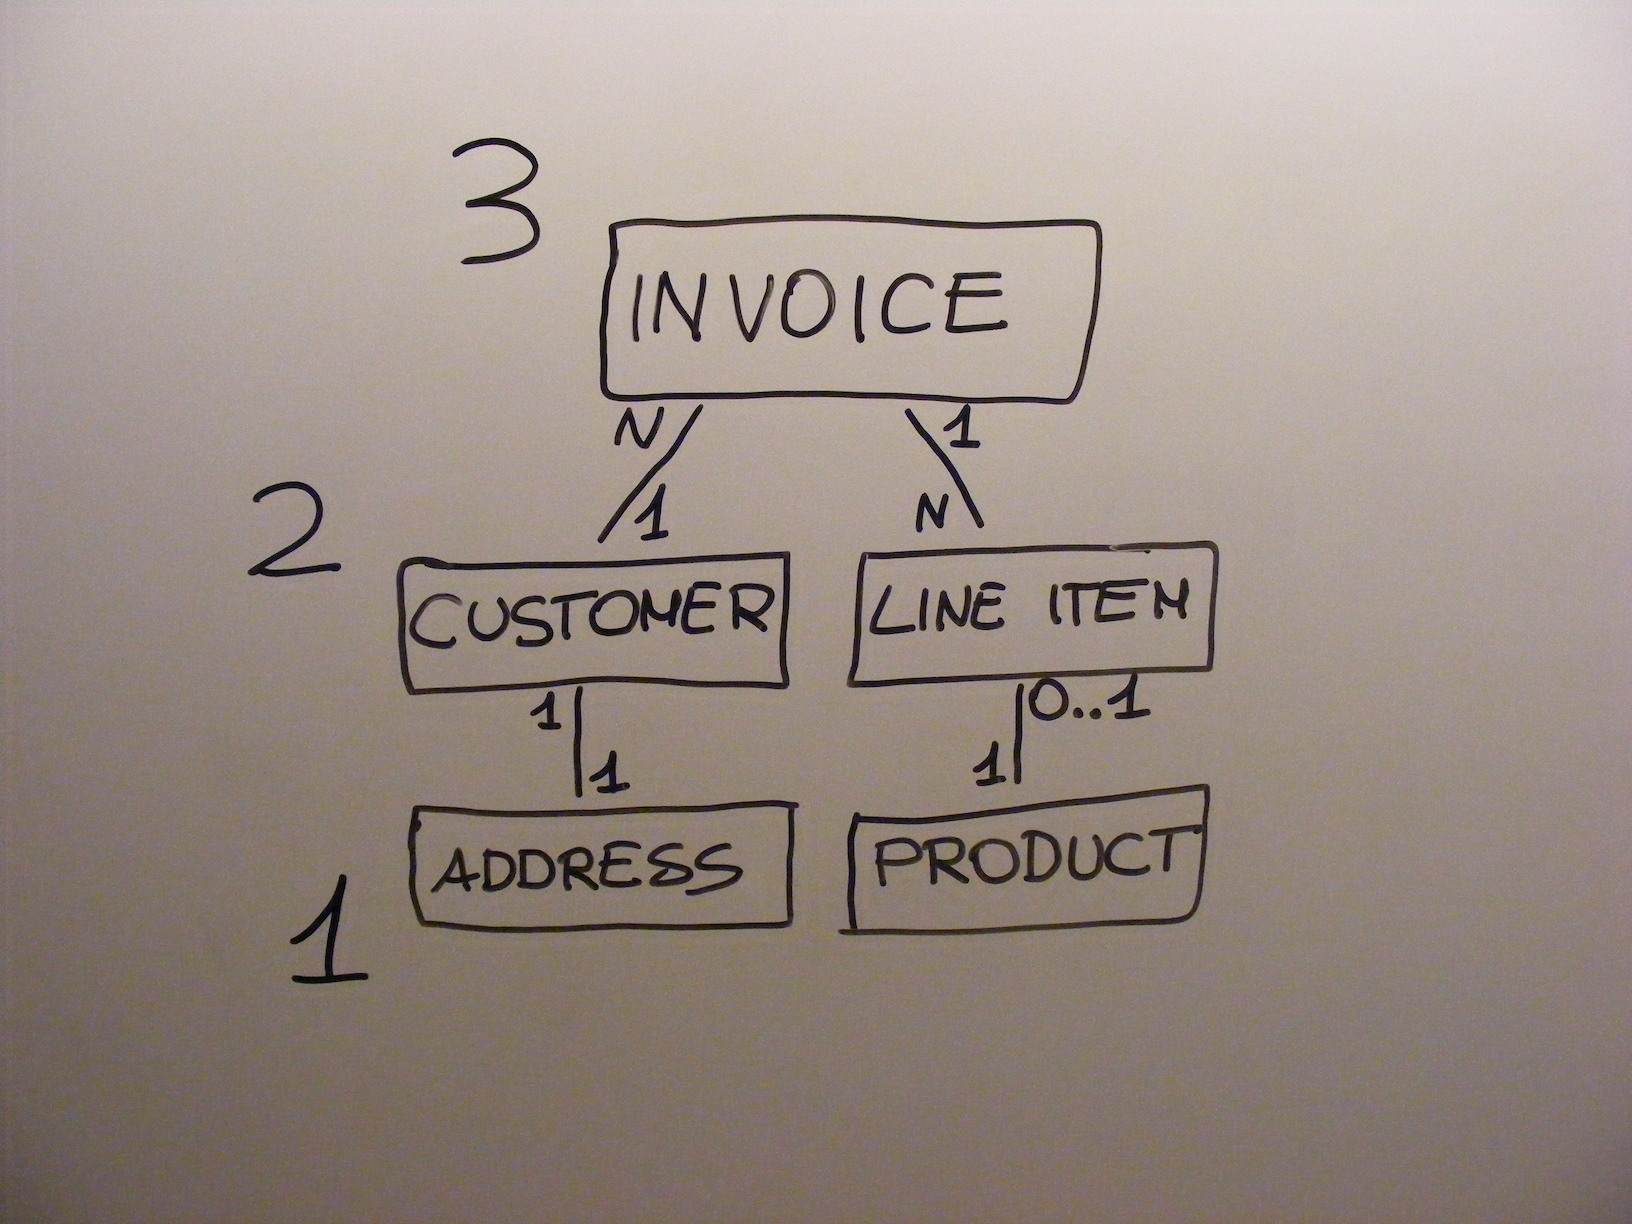 3
INVOICE
N 1
1 N
2
CUSTOMER LINE ITEM
1 0..1
1 1
ADDRESS PRODUCT
1